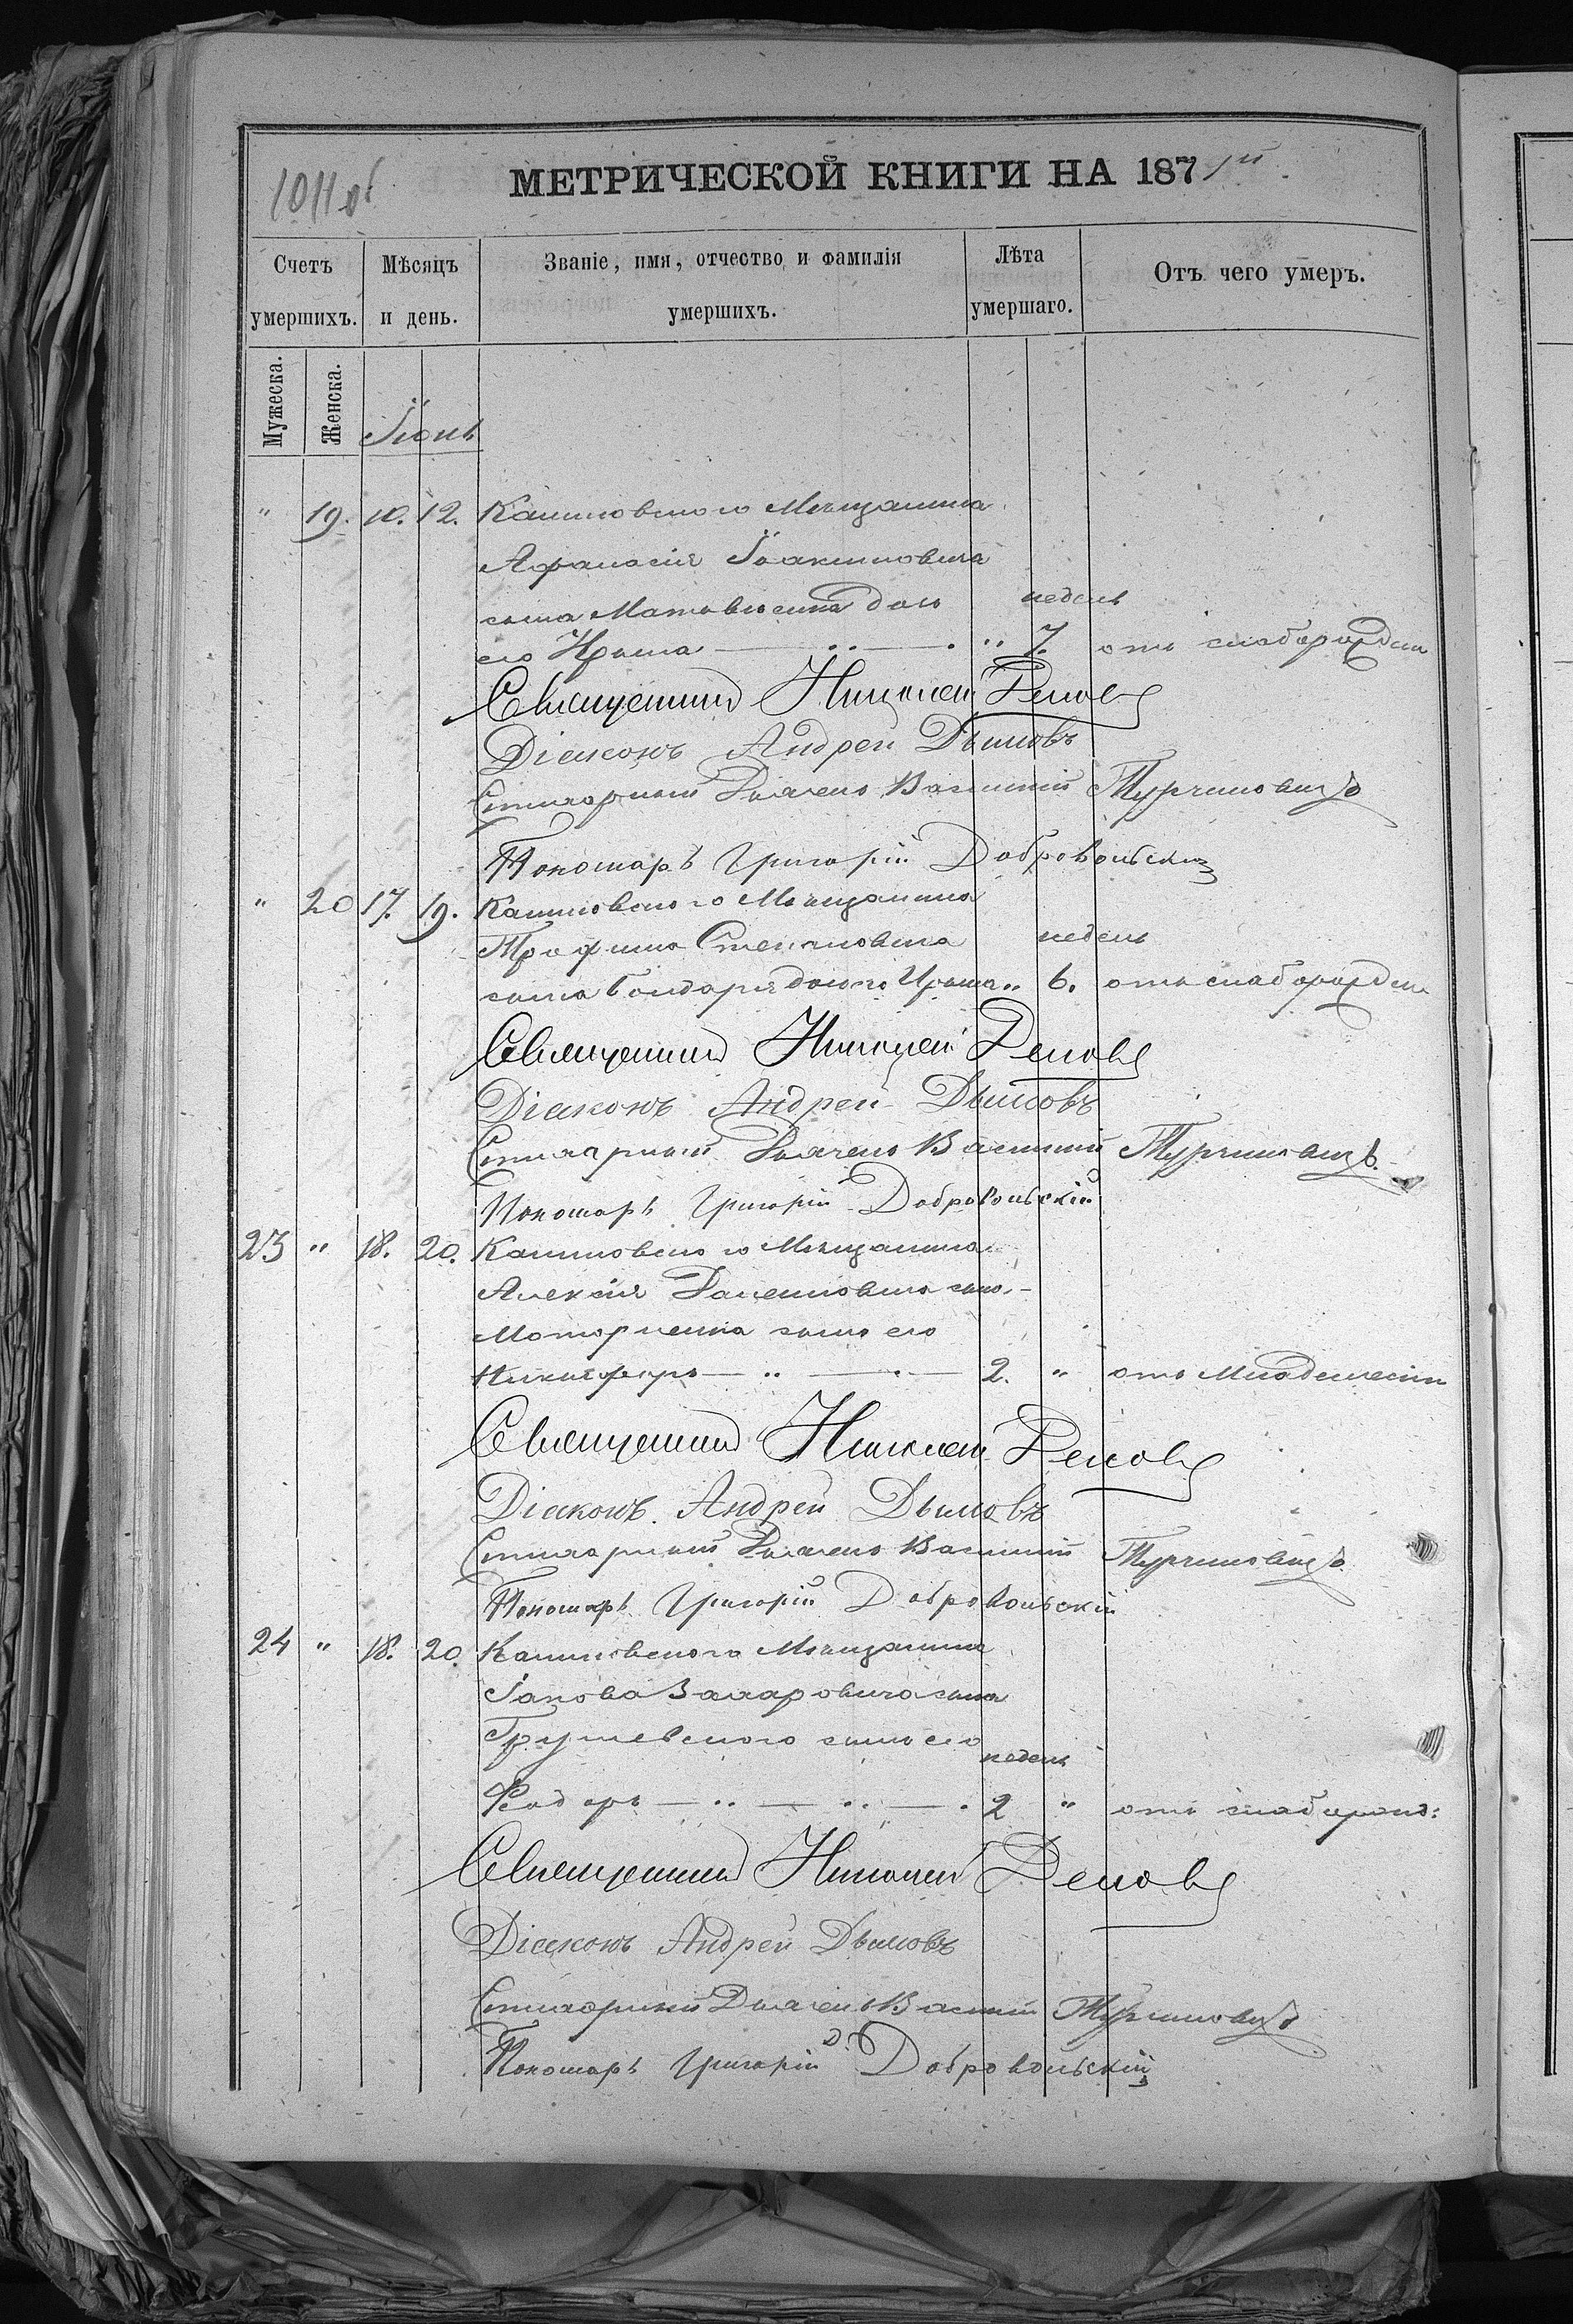 1011 об
МЕТРИЧЕСКОЙ КНИГИ НА 1871й
Счетъ умершихъ.
Мѣсяцъ и день.
Званіе, имя, отчество и фамилія умершихъ.
Лѣта умершаго.
Отъ чего умеръ.
Мужеска.
Женска.
Іюнь
" 19. 10. 12. Мѣщанина
Афанасія Іоакимовича
сына дочь недель
его Ирина " 7. отъ слаборожден
Священникъ Николай
Діаконъ Андрей Дымовъ
Стихарный Дьячекъ Василий Турчиновичъ
Пономаръ Григорій Добровольскій
" 20 17. 19. Мѣщанина
Трофима Степановича недель
сына Бондаря дочь его Ирина " 6. отъ слаборожден
Священникъ Николай
Діаконъ Андрей Дымовъ
Стихарный Дьячекъ Василий Турчиновичъ.
Пономаръ Григорій Добровольскій
23 " 18. 20. Мѣщанина
Алексія сына
сынъ его
Никифоръ 2. " отъ Младенческ
Священникъ Николай
Діаконъ Андрей Дымовъ
Стихарный Дьячекъ Василий Турчиновичъ
Пономаръ Григорій Добровольскій
24 " 18. 20. Мѣщанина
Іакова Захаровича сына
Грушевского сынъ его недель
Феодоръ 2 " отъ слаборожд:
Священникъ Николай
Діаконъ Андрей Дымовъ
Стихарный Дьячекъ Василий Турчиновичъ
Пономаръ Григорій Добровольскій